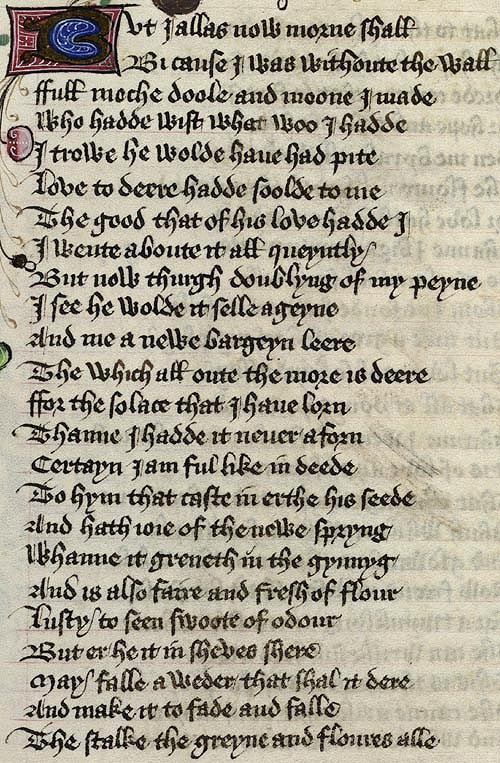 But Jallas now morne shall
Bi cause J was withoute the wall
ffull moche doole and moone J made
Who hadde wist what woo J hadde
J trowe he wolde haue had pite
Love to deere hadde soolde to me
The good that of his love hadde J
J wente aboute it all queyntly
But now thurgh doublyng of my peyne
J see he wolde it selle ageyne
And me a newe bargeyn leere
The which all oute the more is deere
ffor the solace that J haue lorn
Thanne J hadde it neuer aforn
Certayn J am ful like in deede
To hym that caste in erthe his seede
And hath ioie of the newe spryng
Whanne it greneth in the gynnyg
And is also faire and fresh of flour
Lusty to seen swoote of odour
But er he it in sheves shere
May falle a weder that shal it dere
And make it to fade and falle
The stalke the greyne and floures alle